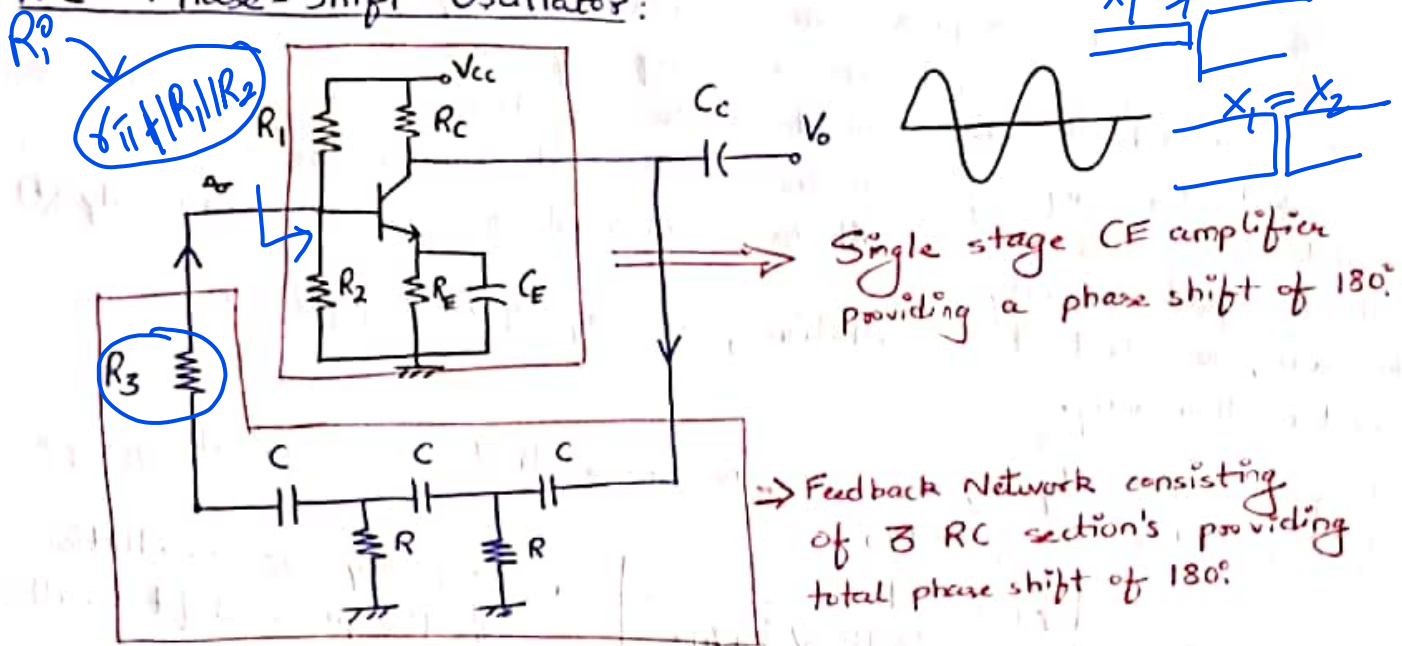 RC Phase-Shift Oscillator:
Ri
rπ || R1 || R2
R1
VCC
RC
CC
Vo
X1 = X2
R2
RE
CE
Single stage CE amplifier
providing a phase shift of 180°.
R3
C
C
C
R
R
⇒ Feedback Network consisting
of 3 RC section's, providing
total phase shift of 180°.